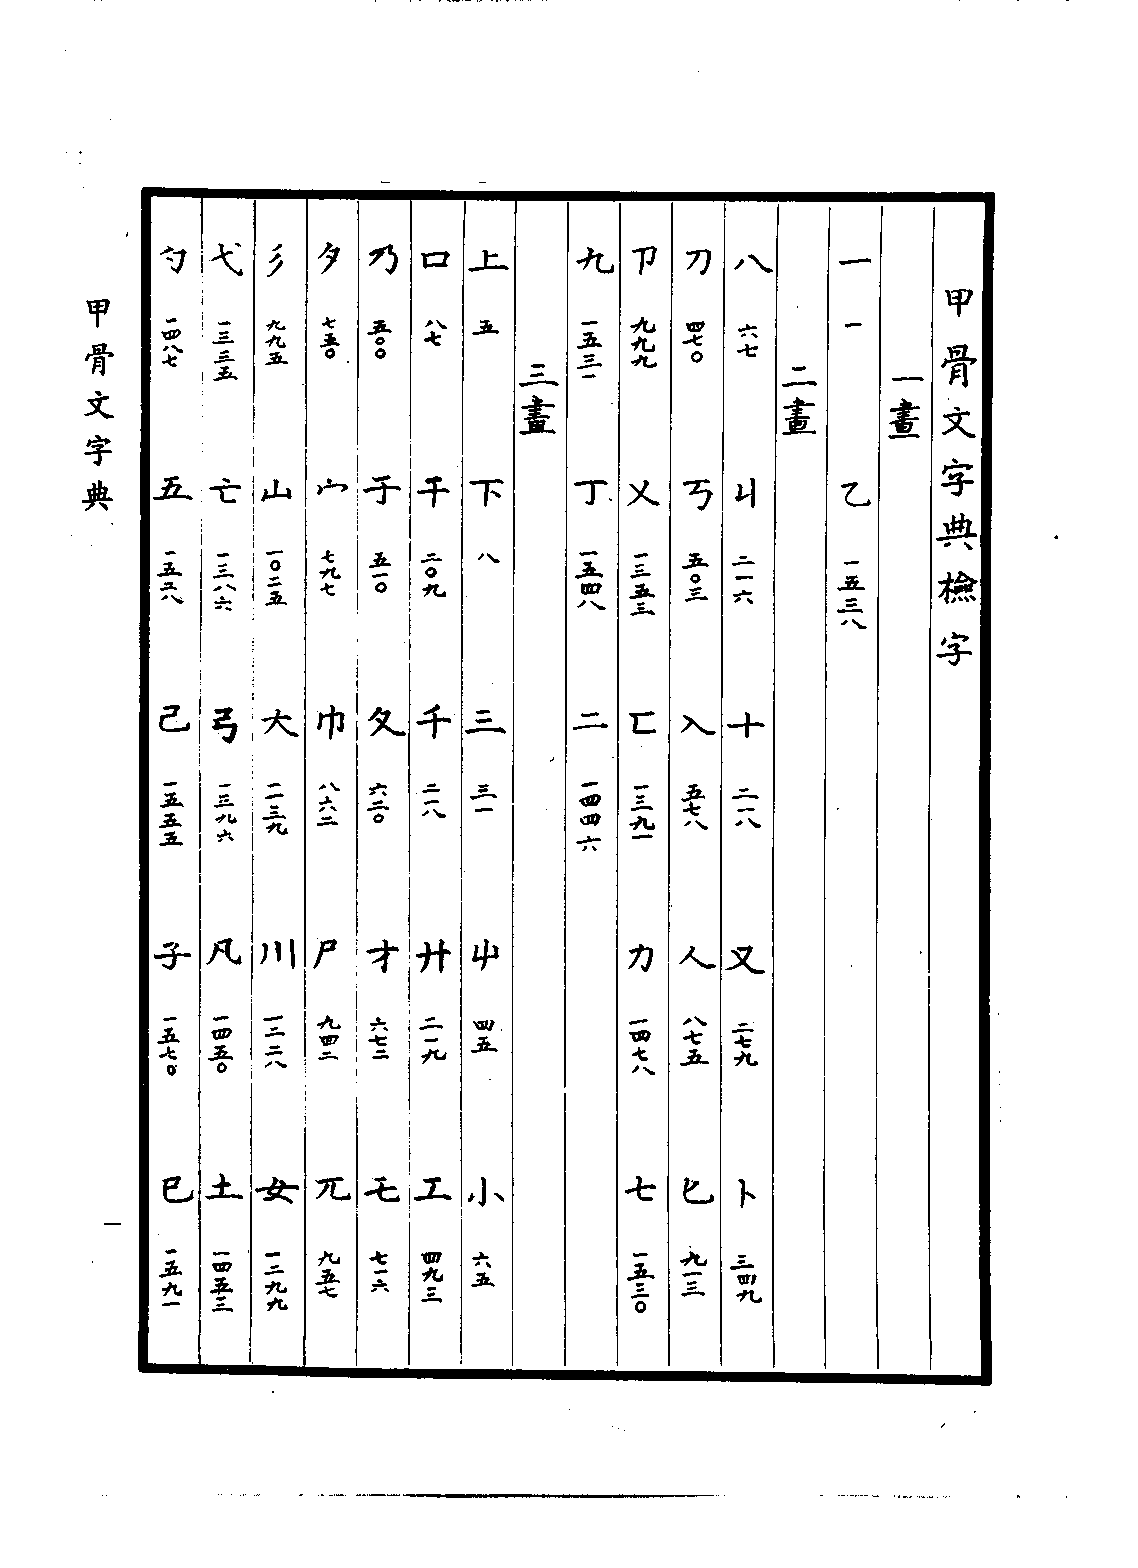 甲骨文字典檢字
一畫
一 一 乙 一五三八
二畫
八 六七 丩 二一六 十 二一八 又 二七九 卜 三四九
刀 四七〇 丂 五〇三 入 五七八 人 八七五 匕 九一三
卩 九九九 乂 一三五三 匚 一三九一 力 一四七八 七 一五三〇
九 一五三一 丁 一五四八 二 一四四六
三畫
上 五 下 八 三 三一 屮 四五 小 六五
口 八七 干 二〇九 千 二一八 廾 二一九 工 四九三
乃 五〇〇 于 五一〇 夂 六二〇 才 六七二 乇 七一六
夕 七五〇 宀 七九七 巾 八六二 尸 九四二 兀 九五七
彡 九九五 山 一〇二五 大 一一三九 川 一二二八 女 一二九九
弋 一三三五 亡 一三八六 弓 一三九六 凡 一四五〇 土 一四五三
勺 一四八七 五 一五二八 己 一五五五 子 一五七〇 巳 一五九一
甲骨文字典
一